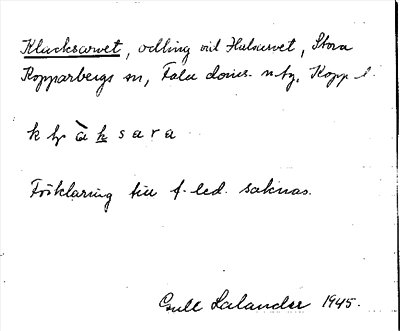 Klacksarvet, odling vid Hulsarvet, Stora
Kopparbergs sn, Falu doms. n. tg, Kopp l.
k ḷ à k s a r a
Förklaring till f. led. saknas.
Gull Salander 1945.